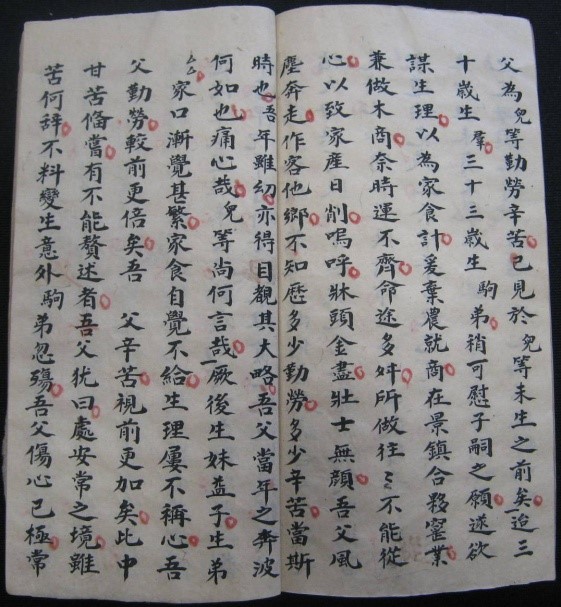 父為兒等勤勞辛苦已見於兒等未生之前矣迨三
十歲生羣三十三歲生駒弟稍可慰子嗣之願遂欲
謀生理以為家食計爰棄農就商在景鎮合夥窰業
兼做木商奈時運不齊命途多舛所做往〻不能從
心以致家産日削嗚呼牀頭金盡壯士無顔吾父風
塵奔走作客他鄉不知歷多少勤勞多少辛苦當斯
時也吾年雖幼亦得目覩其大略吾父當年之奔波
何如也痛心哉兒等尚何言哉厥後生妹益子生弟
厶厶家口漸覺甚繁家食自覺不給生理屢不稱心吾
父勤勞較前更倍矣吾 父辛苦視前更加矣此中
甘苦俻嘗有不能贅述者吾父犹曰處安常之境雖
苦何辞不料變生意外駒弟忽殤吾父傷心已極常